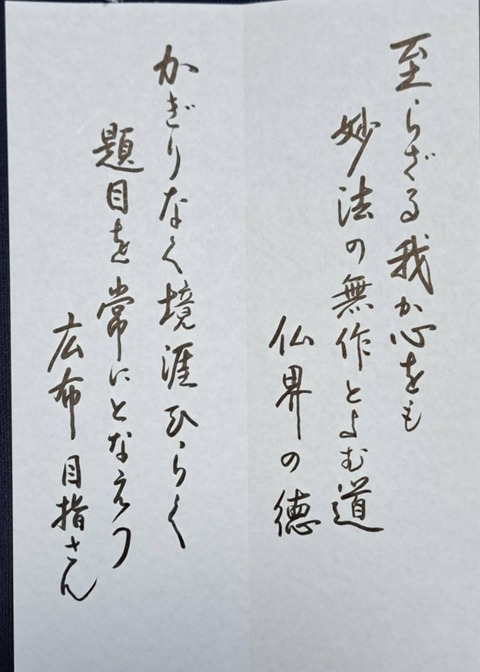 至らざる我が心をも
妙法の無作とよむ道
仏界の徳
かぎりなく境涯ひらく
題目を常にとなえつ
広布目指さん